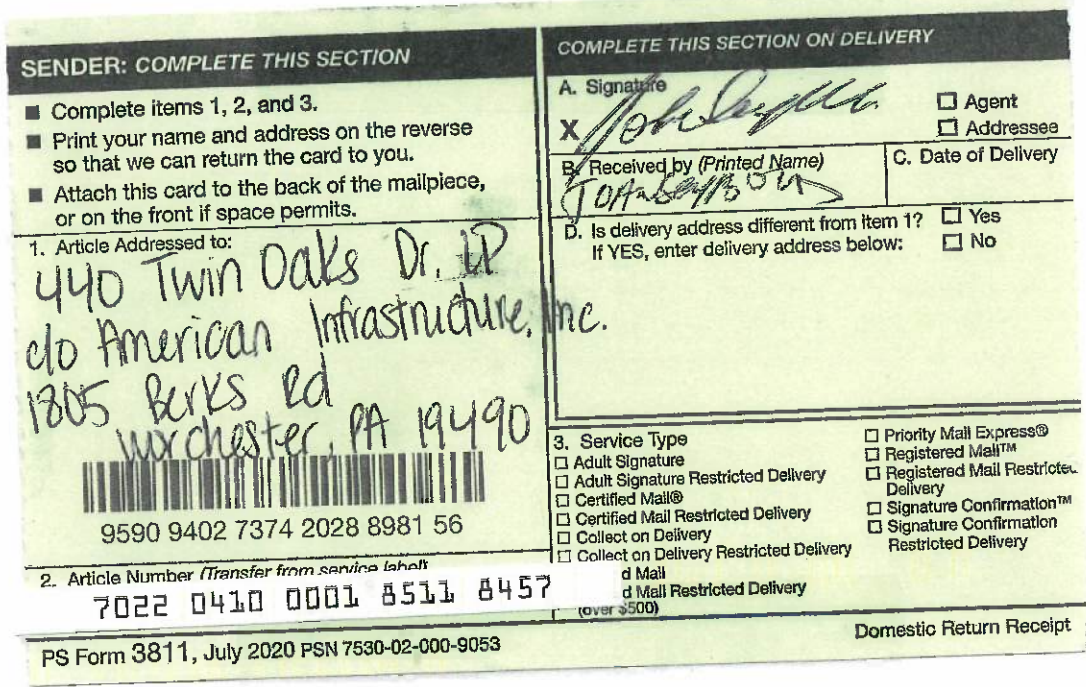 SENDER: COMPLETE THIS SECTION
■ Complete items 1, 2, and 3.
■ Print your name and address on the reverse
so that we can return the card to you.
■ Attach this card to the back of the mailpiece,
or on the front if space permits.
1. Article Addressed to:
440 Twin Oaks Dr. LP
c/o American Infrastructure, Inc.
1805 Berks Rd
Worchester, PA 19490
9590 9402 7374 2028 8981 56
2. Article Number (Transfer from service label)
7022 0410 0001 8511 8457
COMPLETE THIS SECTION ON DELIVERY
A. Signature
X
☐ Agent
☐ Addressee
B. Received by (Printed Name)
C. Date of Delivery
D. Is delivery address different from item 1? ☐ Yes
If YES, enter delivery address below: ☐ No
3. Service Type
☐ Adult Signature
☐ Adult Signature Restricted Delivery
☐ Certified Mail®
☐ Certified Mail Restricted Delivery
☐ Collect on Delivery
☐ Collect on Delivery Restricted Delivery
d Mail
d Mail Restricted Delivery
(over $500)
☐ Priority Mail Express®
☐ Registered Mail™
☐ Registered Mail Restricted
Delivery
☐ Signature Confirmation™
☐ Signature Confirmation
Restricted Delivery
PS Form 3811, July 2020 PSN 7530-02-000-9053
Domestic Return Receipt